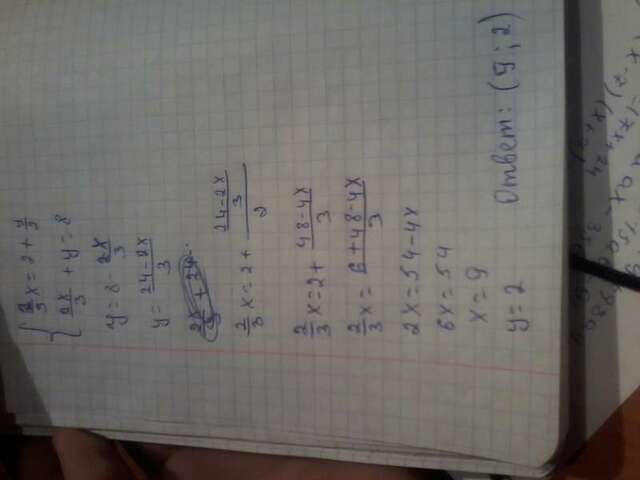 { 2/3 x = 2 + y/3
2x/3 + y = 8
y = 8 - 2x/3
y = 24-2x/3
2/3 x = 2 + 24-2x/3/2
2/3 x = 2 + 48-4x/3
2/3 x = 6+48-4x/3
2x = 54-4x
6x = 54
x = 9
y = 2
Ответ: (9; 2)